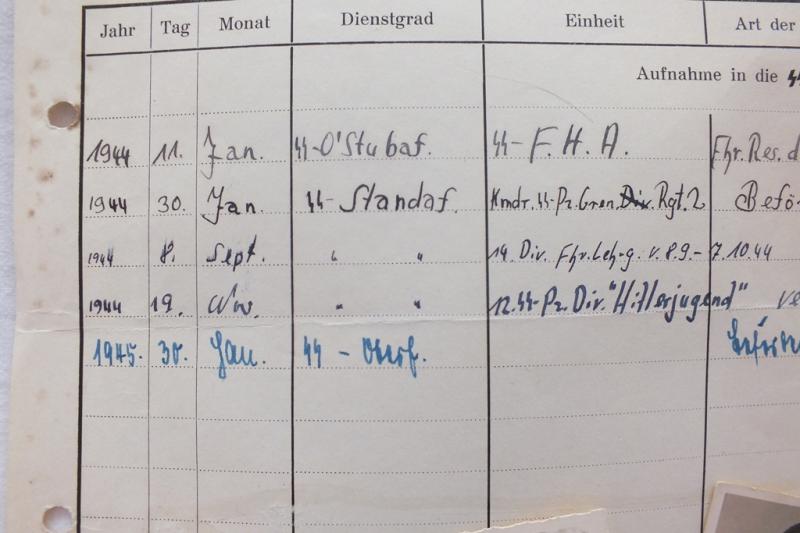 Jahr Tag Monat Dienstgrad Einheit Art der
Aufnahme in die ᛋᛋ
1944 11. Jan. ᛋᛋ-O'Stubaf. ᛋᛋ-F.H.A. Fhr.Res.d
1944 30. Jan. ᛋᛋ-Standaf. Kmdr.ᛋᛋ-Pz.Gren. Rgt.2 Beför
1944 8. Sept. " " 14. Div. Fhr.Lehrg. v. 8.9.-7.10.44
1944 19. Nov. " " 12.ᛋᛋ-Pz.Div."Hitlerjugend" ve
1945. 30. Jan. ᛋᛋ-Oberf.